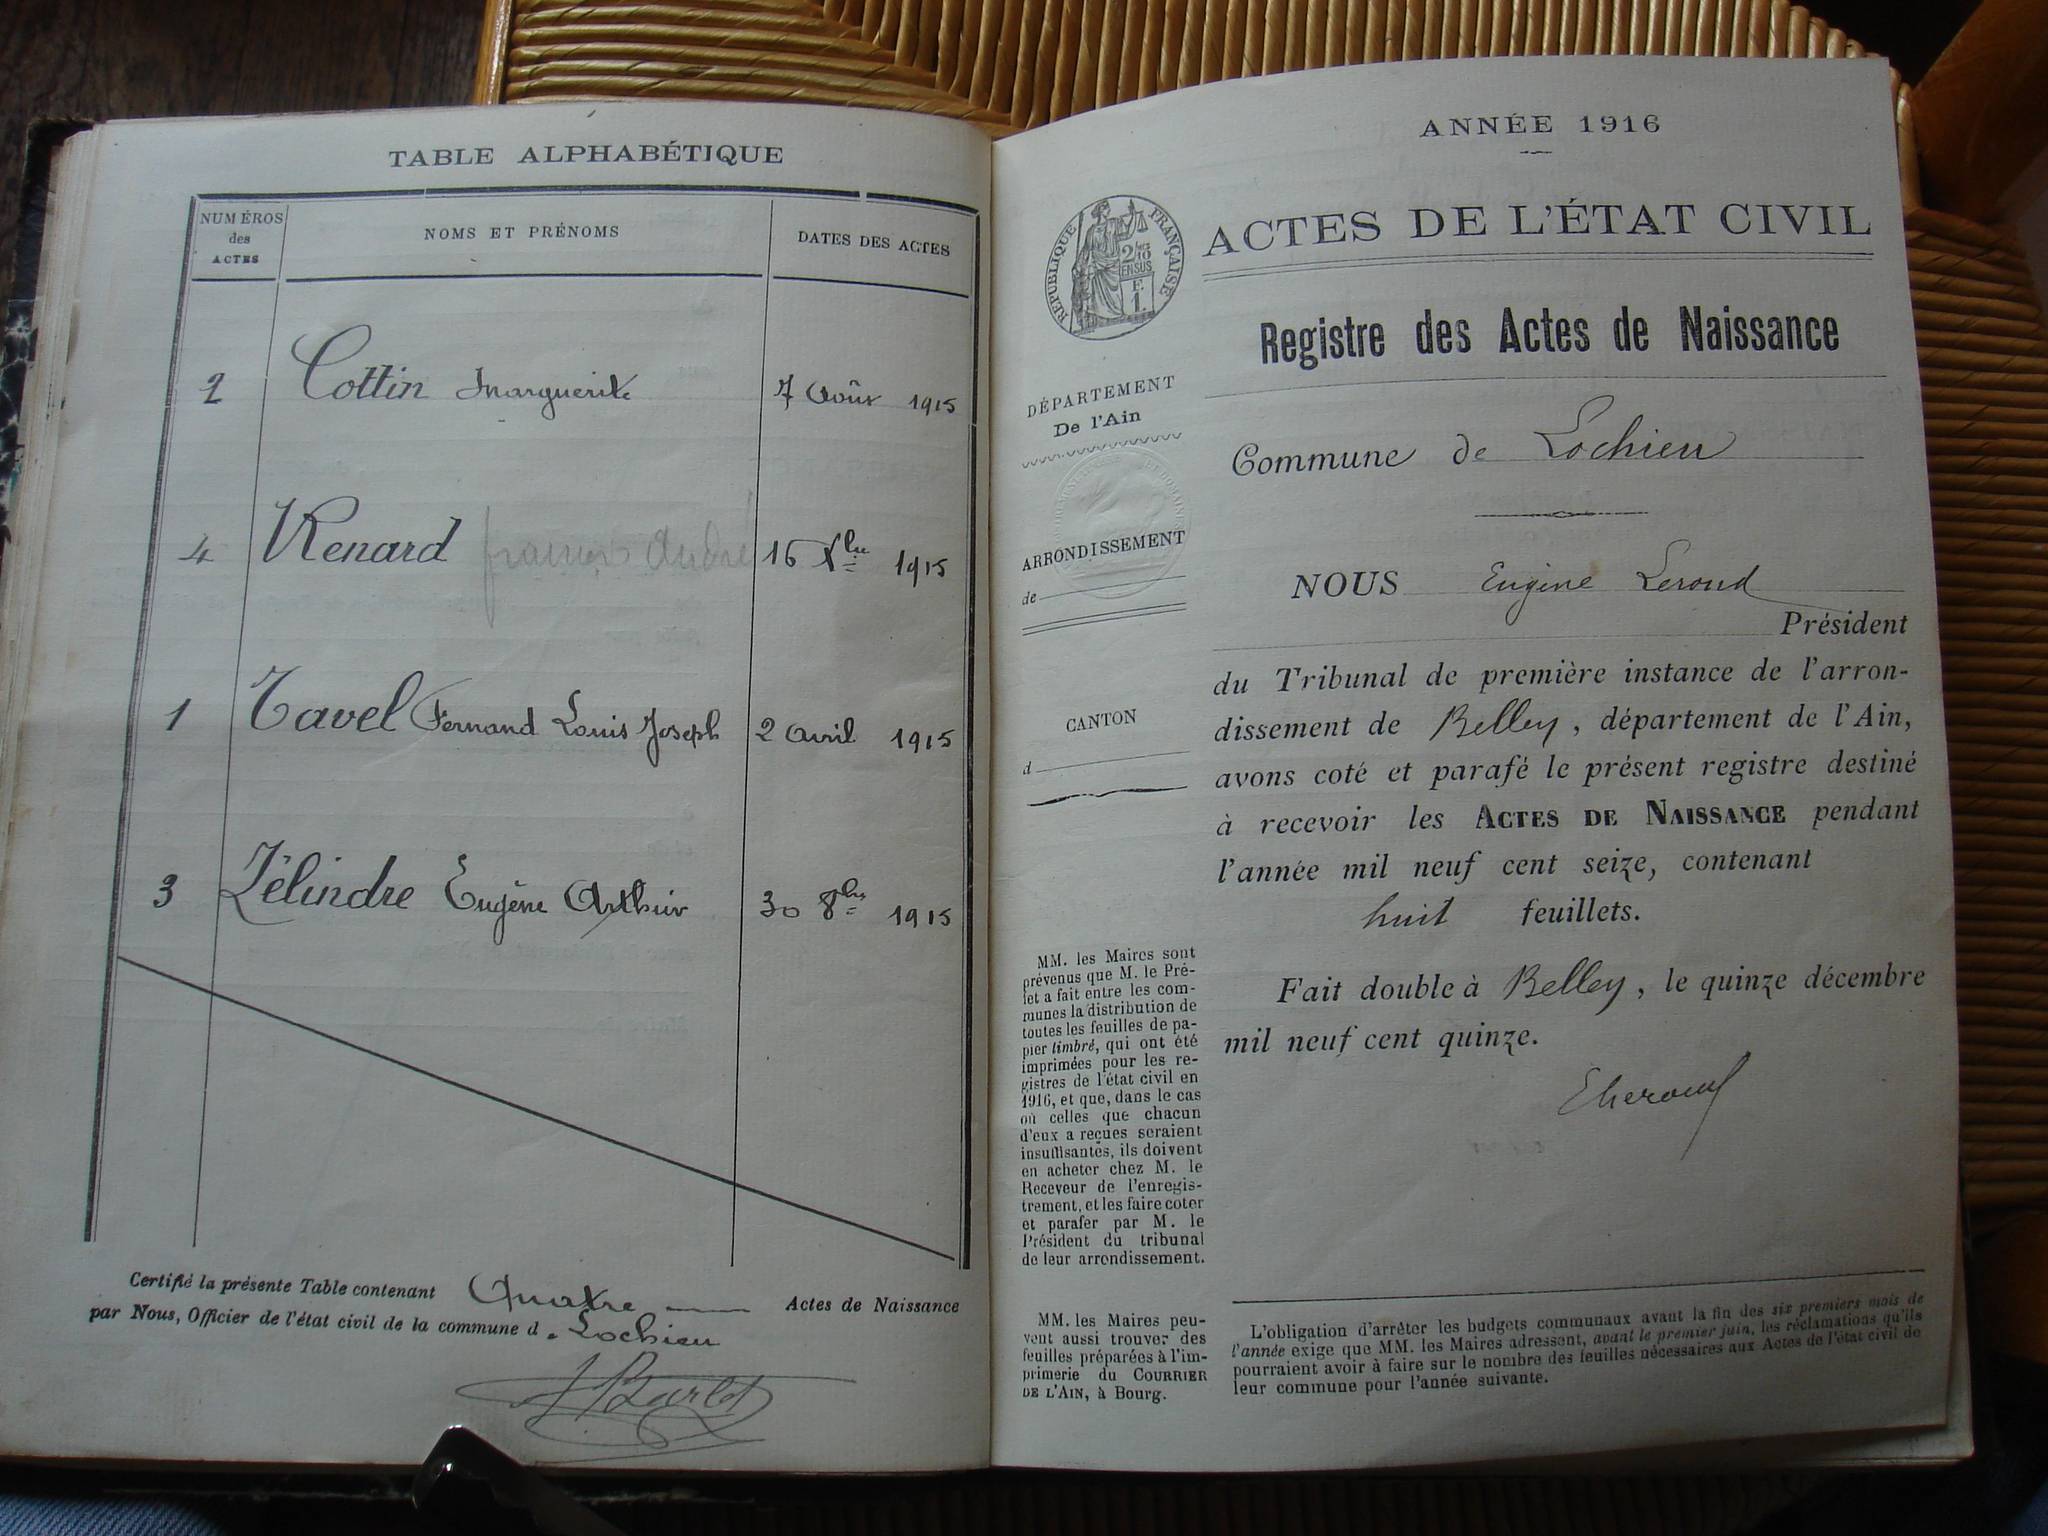 TABLE ALPHABÉTIQUE
NUMÉROS
des
ACTES
NOMS ET PRÉNOMS
DATES DES ACTES
2 Cottin Marguerite 7 Août 1915
4 Renard André 16 Xbre 1915
1 Tavel Fernand Louis Joseph 2 Avril 1915
3 Zélindre Eugène Arthur 30 8bre 1915
Certifié la présente Table contenant Quatre Actes de Naissance
par Nous, Officier de l'état civil de la commune d e Lochieu
ANNÉE 1916
RÉPUBLIQUE FRANÇAISE
2/10
EN SUS
F.
1.
ACTES DE L'ÉTAT CIVIL
Registre des Actes de Naissance
DÉPARTEMENT
De l'Ain
ARRONDISSEMENT
de
CANTON
d
MM. les Maires sont
prévenus que M. le Pré-
fet a fait entre les com-
munes la distribution de
toutes les feuilles de pa-
pier timbré, qui ont été
imprimées pour les re-
gistres de l'état civil en
1916, et que, dans le cas
où celles que chacun
d'eux a reçues seraient
insuffisantes, ils doivent
en acheter chez M. le
Receveur de l'enregis-
trement, et les faire coter
et parafer par M. le
Président du tribunal
de leur arrondissement.
MM. les Maires peu-
vent aussi trouver des
feuilles préparées à l'im-
primerie du COURRIER
DE L'AIN, à Bourg.
Commune de Lochieu
NOUS Eugène Leroud
Président
du Tribunal de première instance de l'arron-
dissement de Belley, département de l'Ain,
avons coté et parafé le présent registre destiné
à recevoir les ACTES DE NAISSANCE pendant
l'année mil neuf cent seize, contenant
huit feuillets.
Fait double à Belley, le quinze décembre
mil neuf cent quinze.
L'obligation d'arrêter les budgets communaux avant la fin des six premiers mois de
l'année exige que MM. les Maires adressent, avant le premier juin, les réclamations qu'ils
pourraient avoir à faire sur le nombre des feuilles nécessaires aux Actes de l'état civil de
leur commune pour l'année suivante.